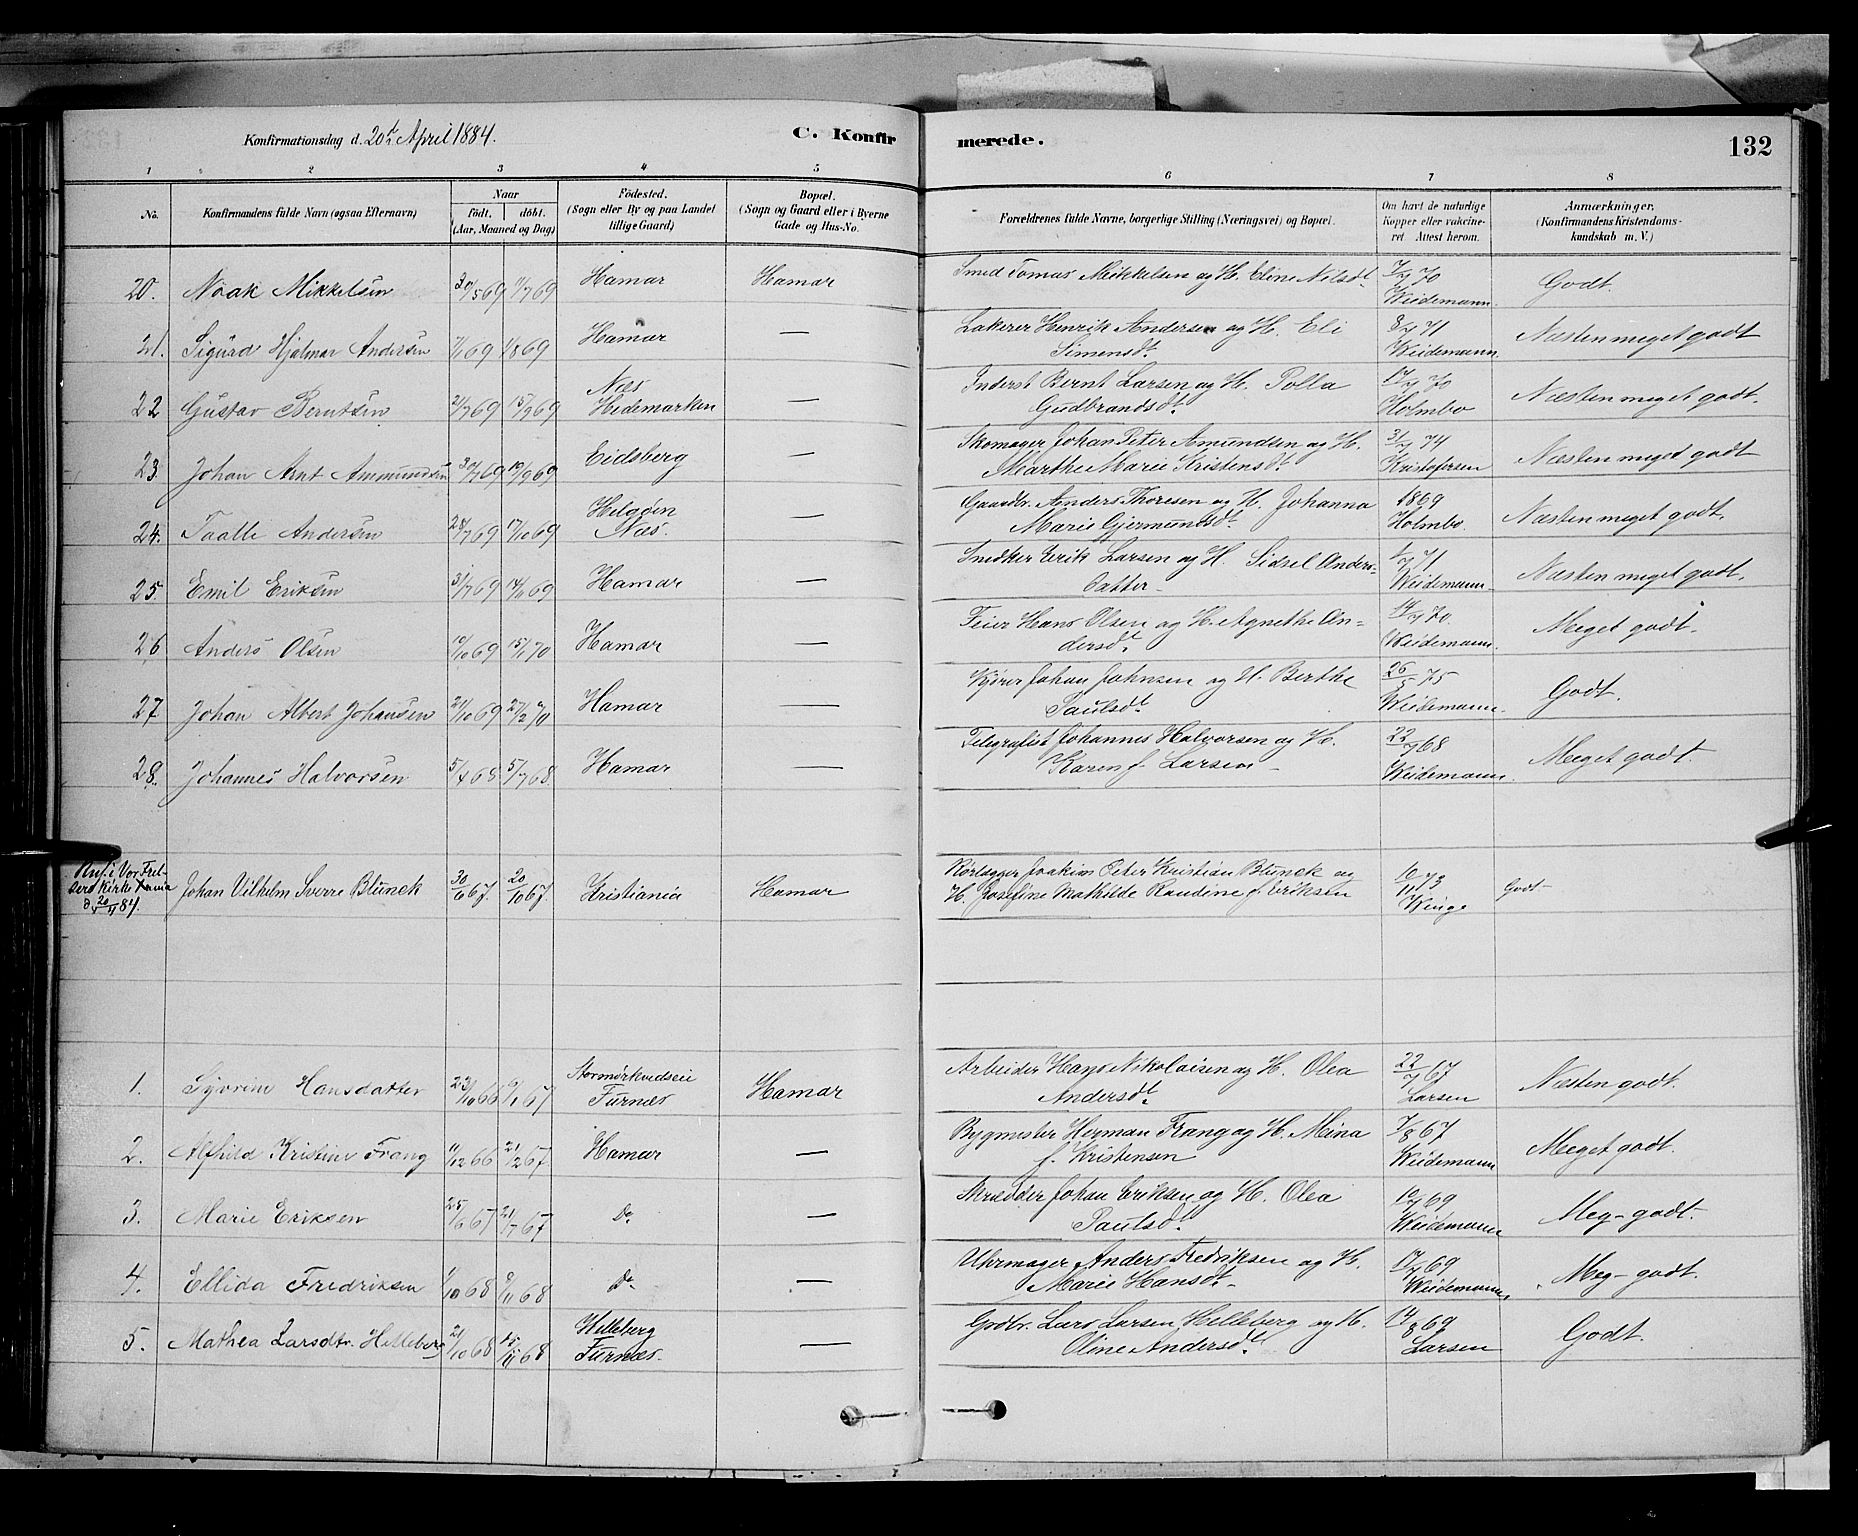 Konfirmationsdag d. 20de April 1884.
C. Konfirmerede.
132
1 2 3 4 5 6 7 8
No.
Konfirmandens fulde Navn (ogsaa Efternavn)
Naar
født. døbt.
(Aar, Maaned og Dag)
Fødested.
(Sogn eller By og paa Landet
tillige Gaard)
Bopæl.
(Sogn og Gaard eller i Byerne
Gade og Hus-No.
Forældrenes fulde Navne, borgerlige Stilling (Næringsvei) og Bopæl.
Om havt de naturlige
Kopper eller vakcine-
ret Attest herom.
Anmærkninger.
(Konfirmandens Kristendoms-
kundskab m. V.)
20. Noak Mikkelsen 30/5 69 11/7 69 Hamar Hamar Smed Tomas Mikkelsen og H. Eline Nilsdt. 7/7 70 Weidemann. Godt.
21. Sigurd Hjalmar Andersen 7/1 69 1/8 69 Hamar — Lakerer Henrik Andersen og H. Eli
Simensdt. 71 Weidemann. Næsten meget godt
22 Gustav Berntsen 2/7 69 15/9 69 Næs
Hedemarken — Inderst Bernt Larsen og H. Polla
Gudbrandsdt. 70 Holmbo Næsten meget godt.
23. Johan Arnt Ammundsen 30/7 69 19/9 69 Eidsberg — Skomager Johan Peter Amundsen og H.
Marthe Marie Kristensdt. 31/7 74 Kristofersen Næsten meget godt
24. Taalle Andersen 28/7 69 17/10 69 Helgøen
Næs. — Gaardbr. Anders Thoresen og H. Johanna
Marie Gjermundsdt. 1869 Holmbo. Næsten meget godt.
25. Emil Eriksen 31/7 69 14/11 69 Hamar — Snedker Erik Larsen og H. Sidsel Anders-
datter – 71 Weidemann. Næsten meget godt.
26 Anders Olsen 10/10 69 15/1 70 Hamar — Feier Hans Olsen og H. Agnethe An-
dersdt. 70. Weidemann. Meget godt.
27. Johan Albert Johansen 21/10 69 27/2 70 Hamar — Kjører Johan Johnsen og H. Berthe
Paulsdt. 26/5 75 Weidemann. Godt.
28. Johannes Halvorsen 5/4 68 5/7 68. Hamar — Telegrafist Johannes Halvorsen og H.
Karen f. Larsen – 22/9 68 Weidemann. Meget godt.
i Vor Frel-
sers Kirke
20/4 84. Johan Vilhelm Sverre Blunck 30/6 67. 20/10 67. Kristiania Hamar Rørlægger Joakim Peter Kristian Blunck og
H. Josefine Mathilde Randine f. Eriksen 6/11 73 Winge Godt –
1. Syverine Hansdatter 23/10 66 6/1 67 Furnæs Hamar Arbeider Hans Nikolaisen og H. Olea
Andersdt. 22/7 67 Larsen Næsten godt.
2. Alfhild Kristine Frang 11/12 66 21/2 67. Hamar — Bygmester Herman Frang og H. Mina
f. Kristensen 7/8 67 Weidemann Meget godt.
3. Marie Eriksen 25/6 67 21/7 67 Do. — Skrædder Johan Eriksen og H. Olea
Paulsdt. 69 Weidemann Meg– godt.
4. Ellida Fredriksen 1/10 68 9/11 68 Do. — Uhrmager Anders Fredriksen og H.
Marie Hansdt. – 69 Weidemann. Meg– godt.
5. Mathea Larsdtr. Helleberg 21/10 68 15/11 68 Helleberg
Furnæs. — Gbr. Lars Larsen Helleberg og H.
Oline Andersdt. 14/8 69 Larsen Godt.